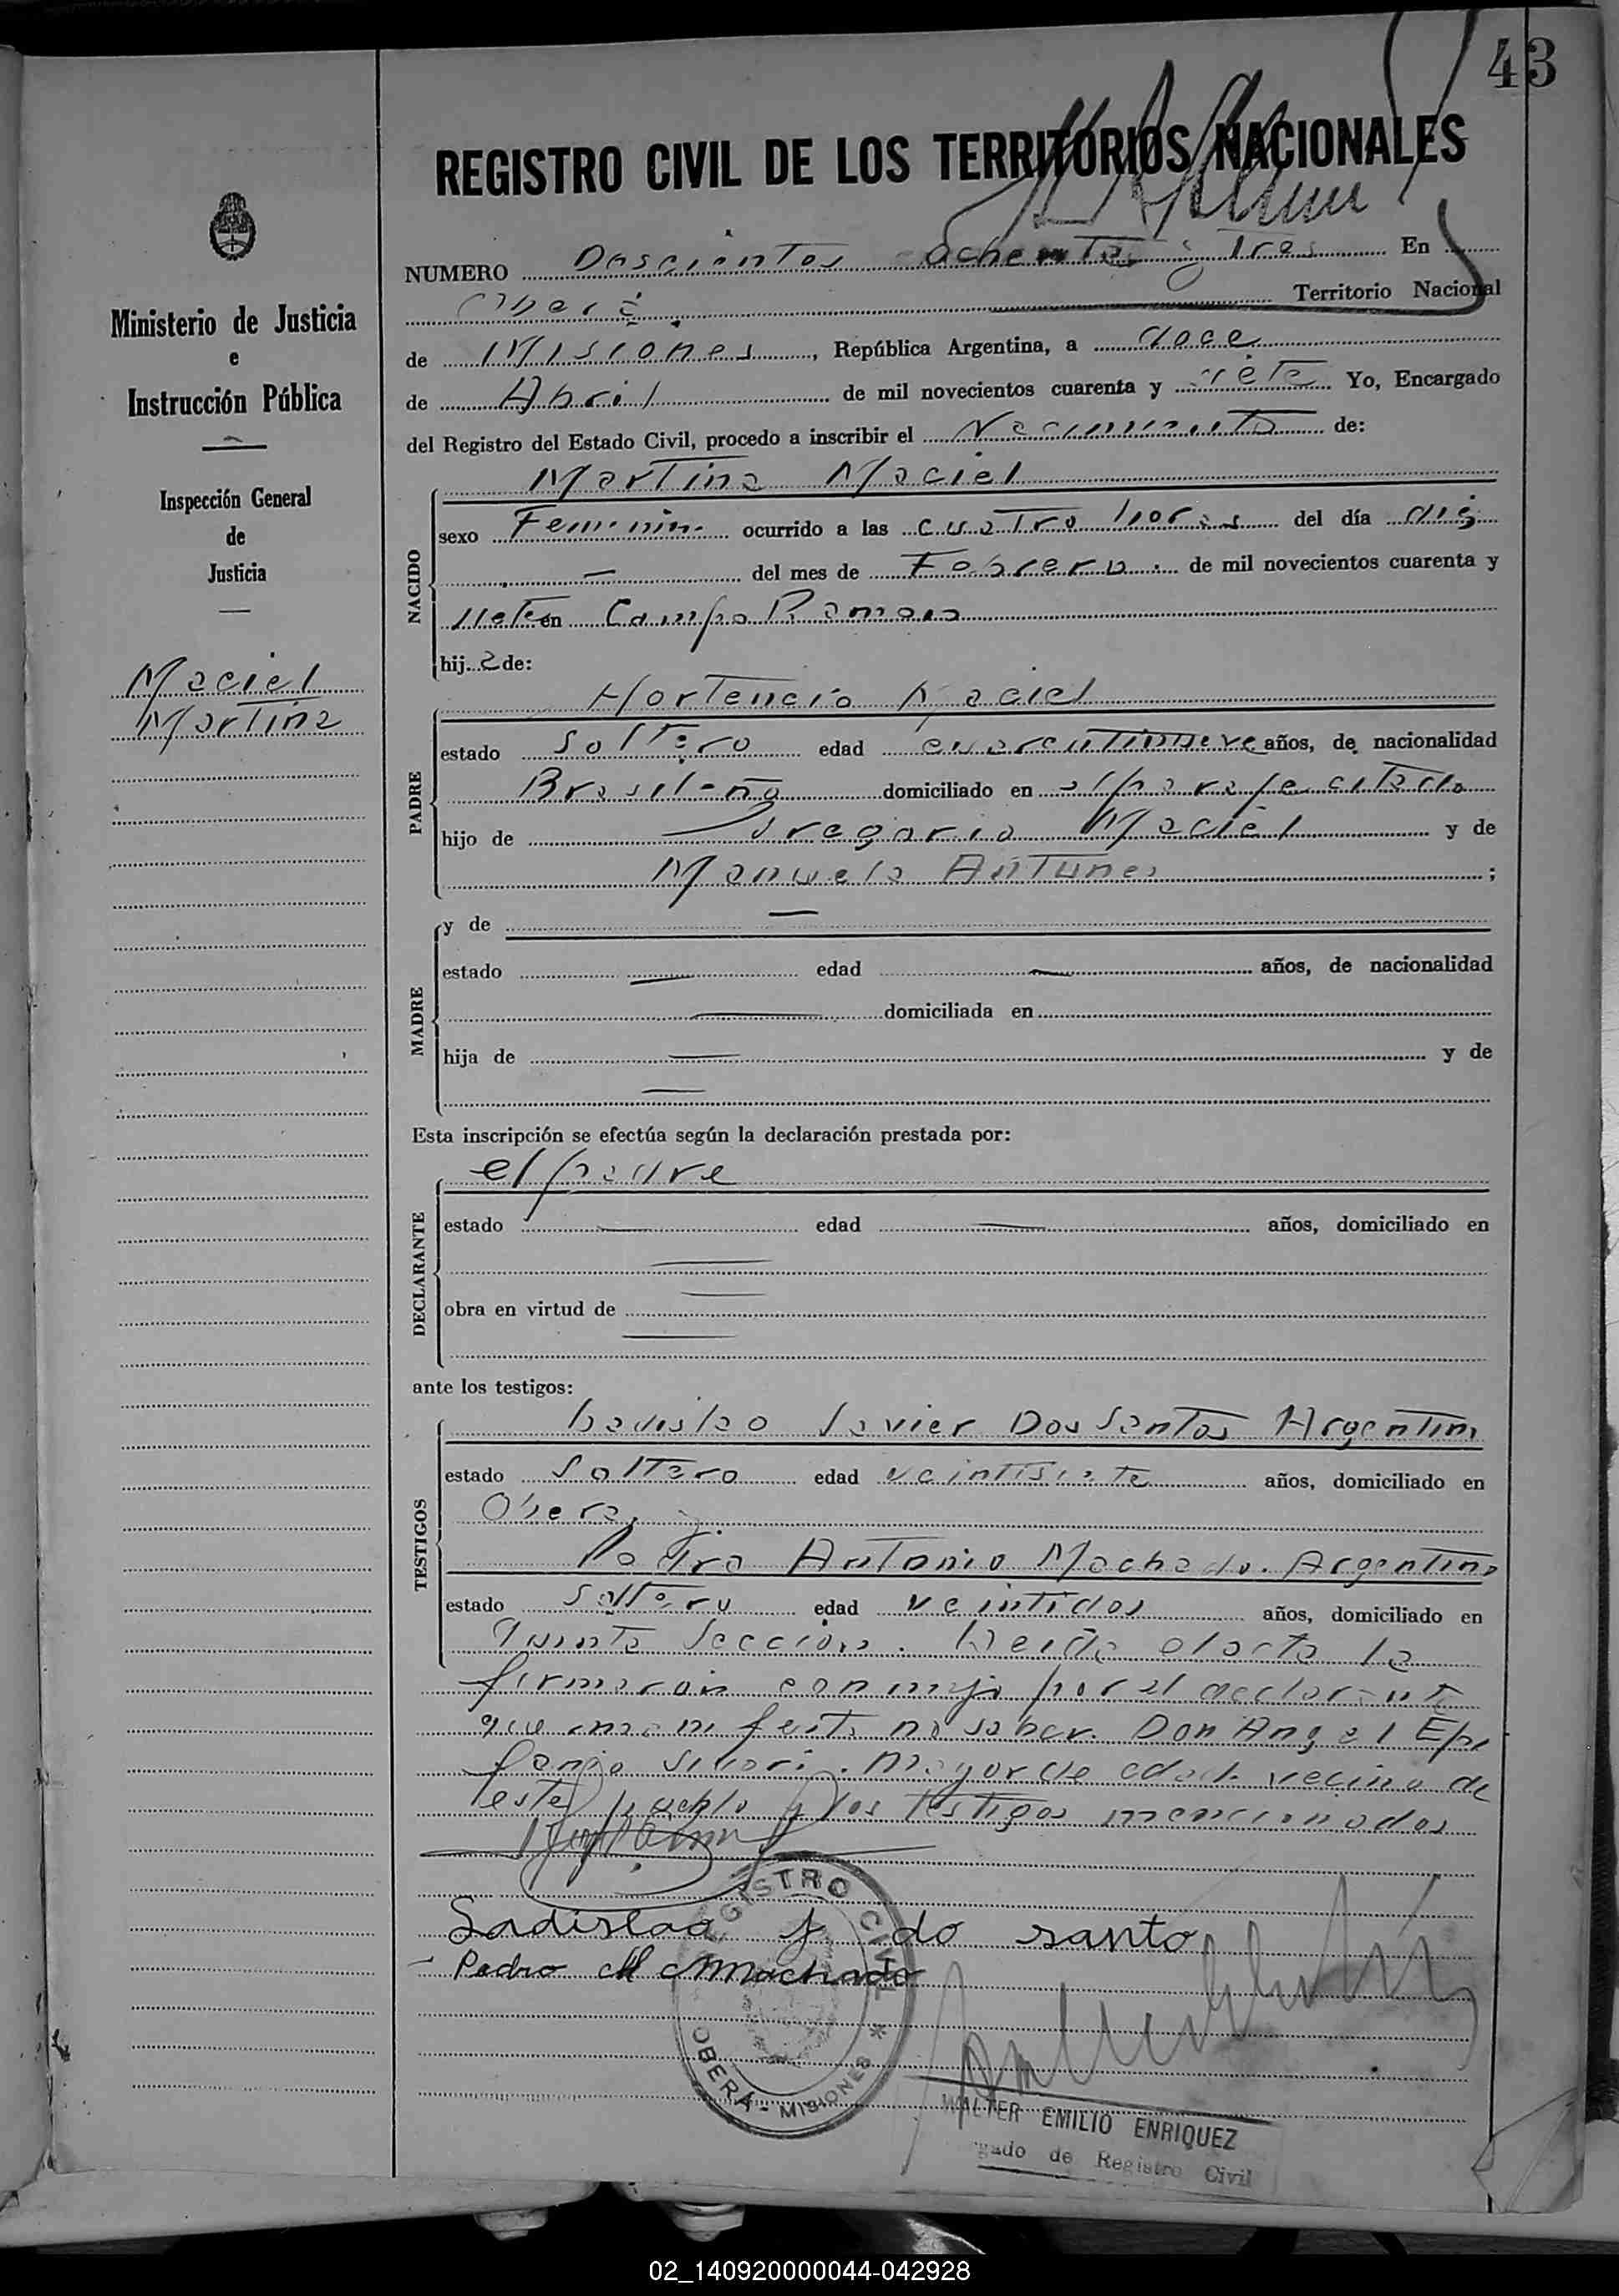 43
REGISTRO CIVIL DE LOS TERRITORIOS NACIONALES
NUMERO Doscientos ochenta y Tres En
Oberá Territorio Nacional
de Misiones, República Argentina, a doce
de Abril de mil novecientos cuarenta y siete Yo, Encargado
del Registro del Estado Civil, procedo a inscribir el Nacimiento de:
NACIDO
Martina Maciel
sexo Femenino ocurrido a las cuatro horas del día diez
— del mes de Febrero de mil novecientos cuarenta y
siete en Campo Ramon
hija de:
PADRE
Hortencio Maciel
estado Soltero edad cuarentinueve años, de nacionalidad
Brasileña domiciliado en el paraje citado
hijo de Gregorio Maciel y de
Manuela Antunes ;
MADRE
y de —
estado — edad — años, de nacionalidad
— domiciliada en
hija de — y de
—
Esta inscripción se efectúa según la declaración prestada por:
DECLARANTE
el padre
estado — edad — años, domiciliado en
—
obra en virtud de —
—
ante los testigos:
TESTIGOS
Ladislao Javier Dos Santos Argentino
estado Soltero edad veintisiete años, domiciliado en
Obera, y
Pedro Antonio Machado. Argentino
estado Soltero edad veintidos años, domiciliado en
Quinta Seccion. Leida el acta la
firmaron conmigo por el declarante
que manifesto no saber. Don Angel Epi
fanio mayor de edad vecino de
este pueblo y los testigos mencionados
Ladislao J do santo
Pedro A Machado
REGISTRO CIVIL
OBERÁ - MISIONES *
WALTER EMILIO ENRIQUEZ
gado de Registro Civil
Ministerio de Justicia
e
Instrucción Pública
Inspección General
de
Justicia
Maciel
Martina
02_140920000044-042928